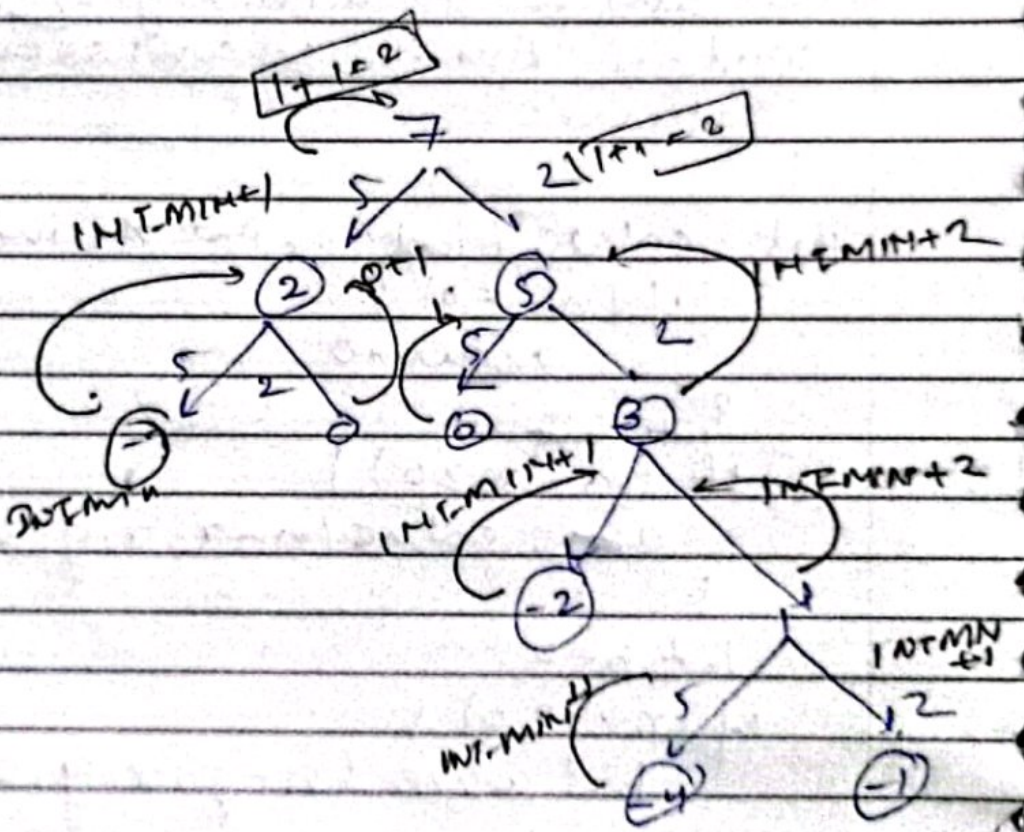 1+1=2
7
2(1+1=2
5
INT-MIN+1
0+1
INTMIN+2
2
5
1
5
2
5
2
0
0
3
INTMIN
INT-MIN+1
INTMIN+2
-2
1
INTMIN
+1
INT-MIN+1
5
2
-4
-1